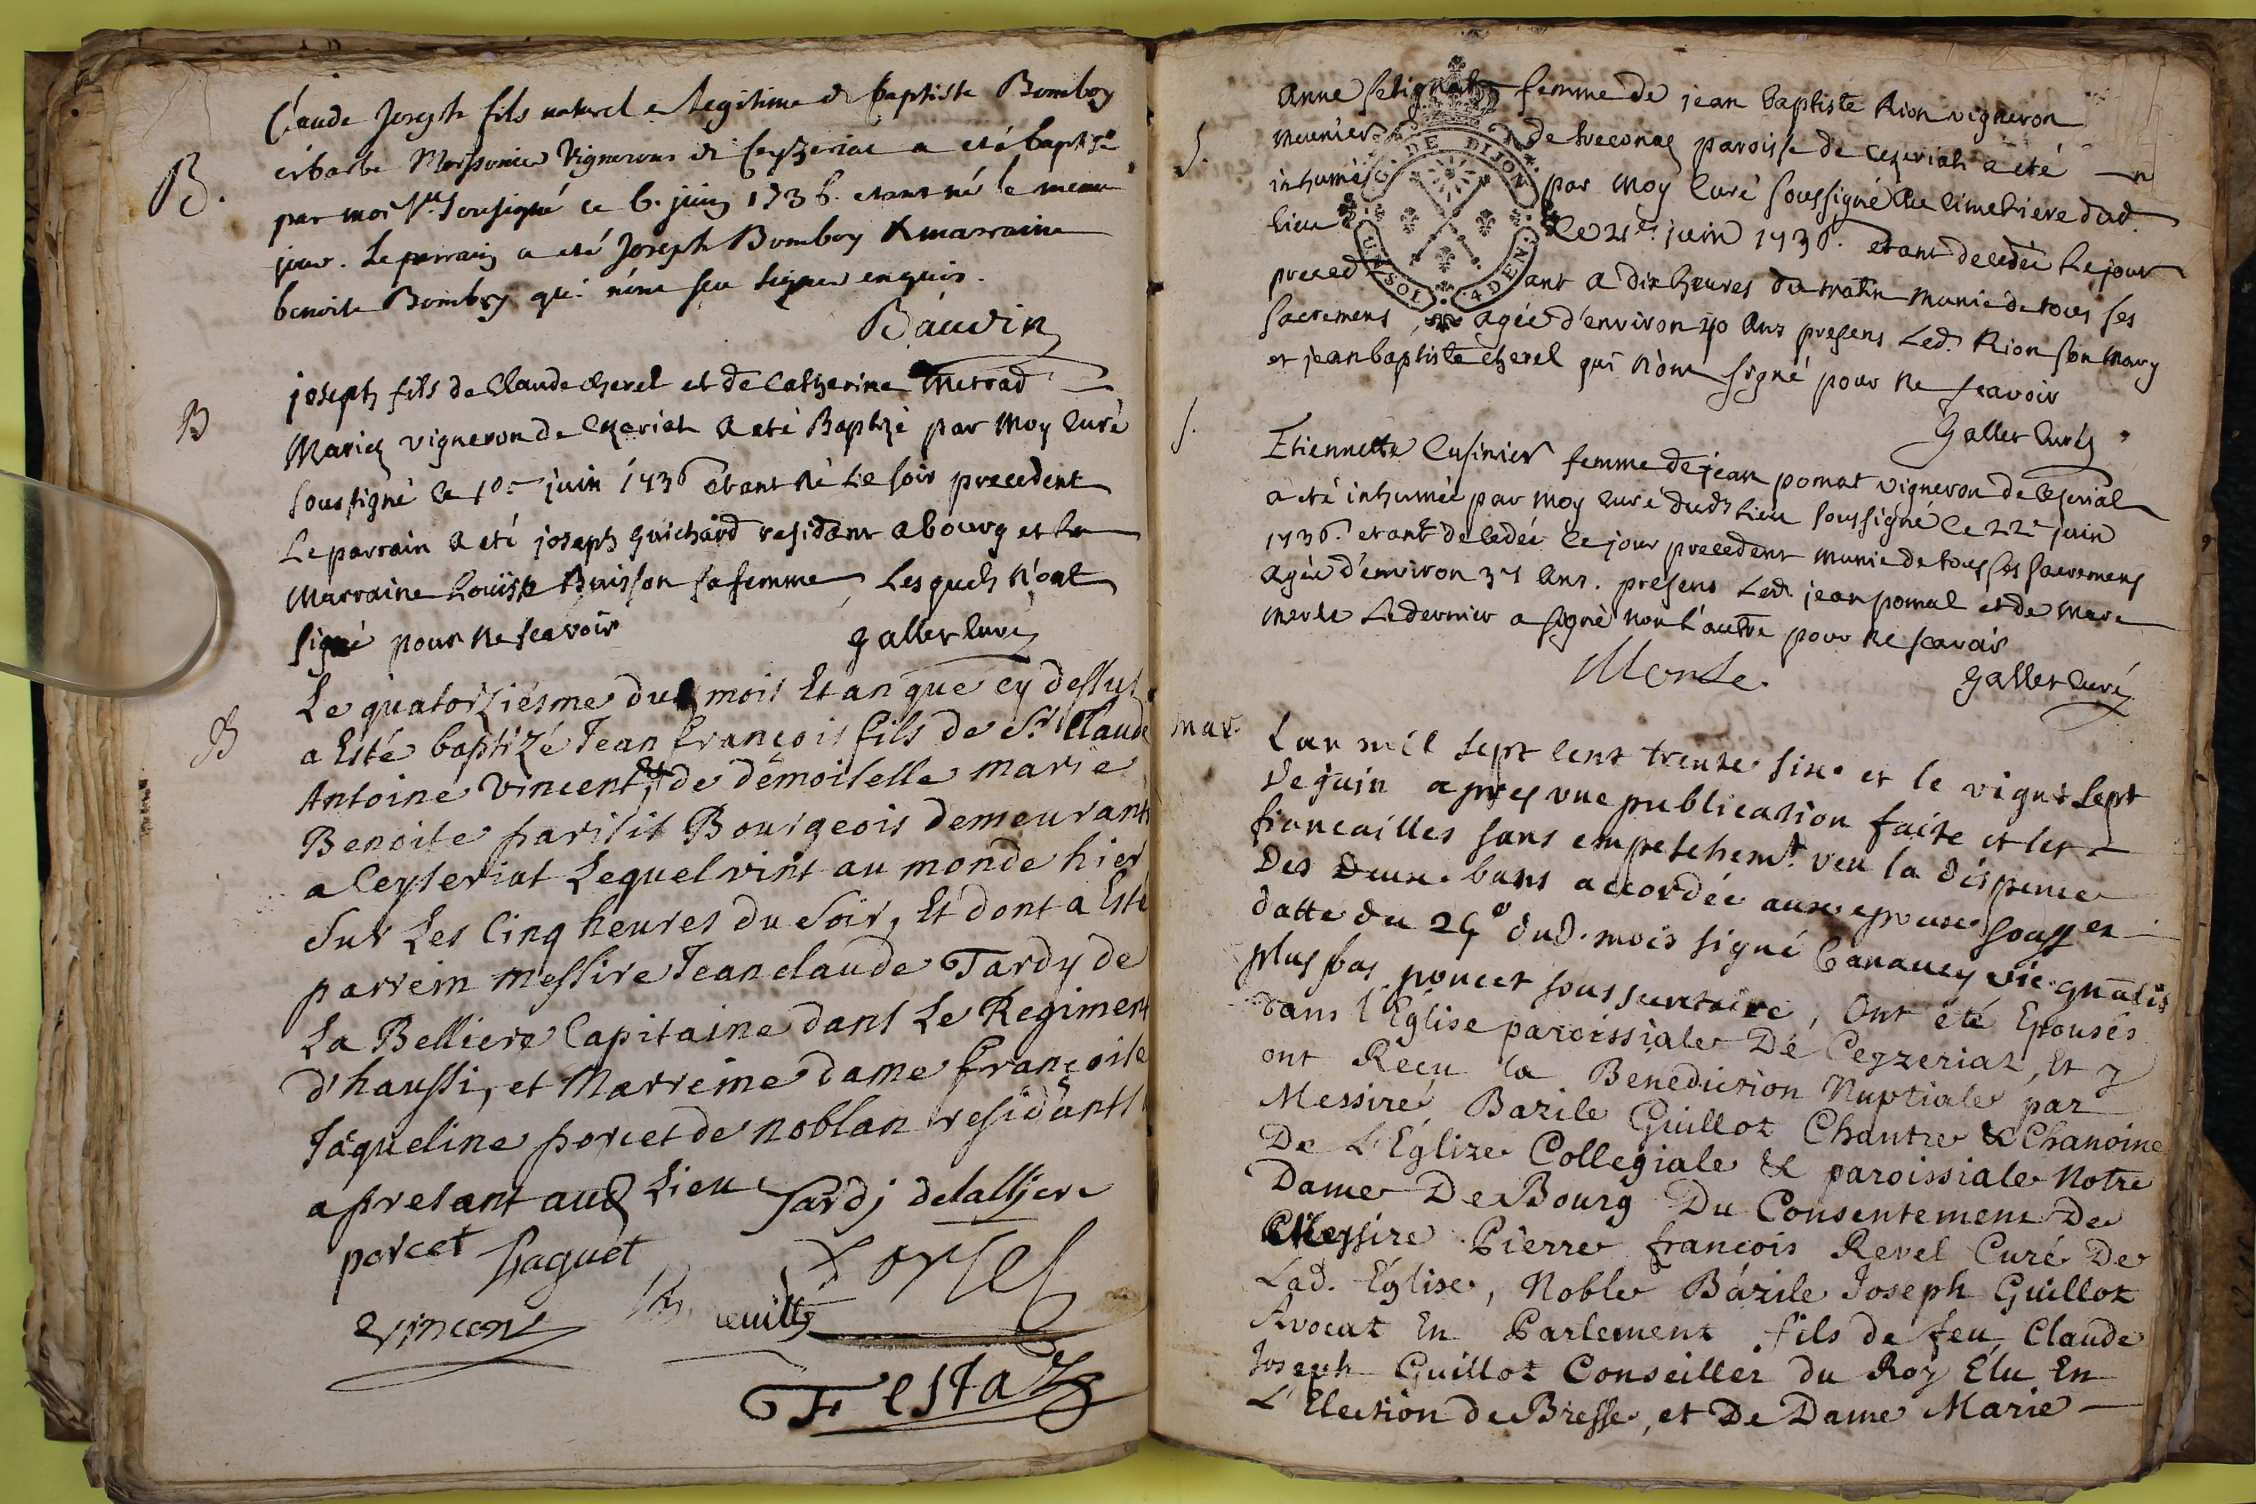 B.
Claude Joseph fils naturel e legitime de baptiste Bomboy
et barbe Vignerons de Ceyzeriat a eté baptisé
par moi soussigné ce 6. juin 1736. etant né le meme
jour. Le parrain a eté Joseph Bomboy & marraine
benoite Bomboy qui n'ont sçu signer enquis.
Bauvin
B
joseph fils de Claude cherel et de Catherine Metrad
Mariez vigneron de Cezeriat a eté Baptizé par Moy Curé
soussigné le juin 1736 etant né Le soir precedent
Le parrain a eté joseph guichard residant a bourg et la
Marraine Louïse Buisson sa femme, Lesquels n'ont
signé pour ne scavoir galler Curé
B
Le quatorziesme du mois Et an que cy dessus
a Esté baptizé Jean françois fils de Sr Claude
Antoine Vincent, et de demoiselle marie
Benoite parisit Bourgeois demeurants
a Ceyseriat Lequel vint au monde hier
Sur Les Cinq heures du Soir, Et dont a Esté
parrein Messire Jean claude Tardy de
La Belliere Capitaine dans Le Regiment
d'haussi, et Marreine dame françoise
Jaqueline porcet de noblan residants
a present aud Lieu Tardj
porcet paguet
vincent
Festaz
S.
Anne femme de jean baptiste Rion vigneron
meunier de paroisse de Cezeriat a eté
inhumée par Moy Curé soussigné au Cimetiere dud.
Lieu Le 21e. juin 1736. etant decedée Le jour
preced ant a dix heures du matin Munie de tous ses
sacremens, agée d'environ 40 Ans presens Led. Rion son Mary
et jean baptiste cherel qui n'ont signé pour ne scavoir
galler Curé
DE DIJON
UN SOL
4 DEN.
S.
Etiennette Cusinier femme de jean pomat vigneron de Ceserial
a eté inhumée par Moy Curé dud. Lieu soussigné Le 22e juin
1736. etant decedée Le jour precedent munie de tous ses sacremens
agée d'environ Ans. presens Led. jean pomal et de Mare
Merle Le dernier a signé non l'autre pour ne scavoir
Merle. galler Curé
mar.
L'an mil sept cent trente six et le vignt sept
de juin apres vne publication faite et les
fiancailles sans empeschemt. veu la dispence
Des Deux bans accordée aux epoux en
datte du dud. mois signé vic. gnalis
plus bas poncet sous , Ont été Epousés
dans l'Eglise paroissiale De Ceyzeriat, Et y
ont Reçu la Benediction Nuptiale par
Messire Bazile Guillot Chantre & Chanoine
De L'Eglize Collegiale & paroissiale Notre
Dame De Bourg Du Consentement De
Messire Pierre françois Revel Curé De
Lad. Eglise, Noble Bazile Joseph Guillot
Avocat En Parlement fils de feu Claude
Joseph Guillot Conseiller du Roy Élu En
L'Election de Bresse, et De Dame Marie